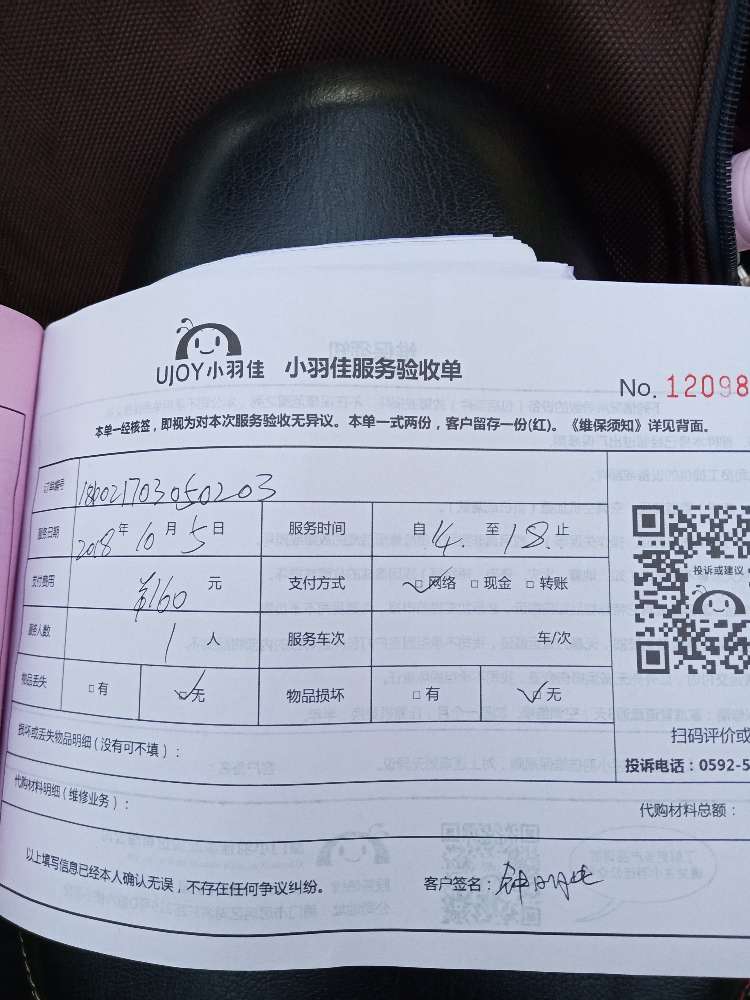 UJOY小羽佳 小羽佳服务验收单
No. 12098
本单一经核签，即视为对本次服务验收无异议。本单一式两份，客户留存一份(红)。《维保须知》详见背面。
订单编号 186021703050203
服务日期 2018年10月5日 服务时间 自14.至18.止
支付费用 ¥160元 支付方式 □网络 □现金 □转账
服务人数 1人 服务车次 车/次
物品丢失 □有 □无 物品损坏 □有 □无
投诉或建议
扫码评价或
投诉电话：0592-5
损坏或丢失物品明细（没有可不填）：
代购材料明细（维修业务）：
代购材料总额：
以上填写信息已经本人确认无误，不存在任何争议纠纷。 客户签名：